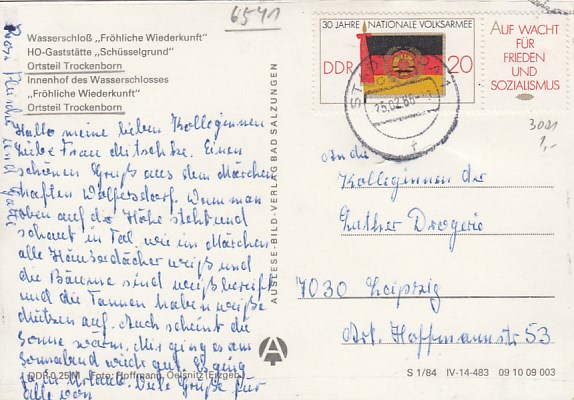 6541
Wasserschloß „Fröhliche Wiederkunft"
HO-Gaststätte „Schüsselgrund"
Ortsteil Trockenborn
Innenhof des Wasserschlosses
„Fröhliche Wiederkunft"
Ortsteil Trockenborn
Hallo meine lieben Kolleginnen
liebe Frau
Einen
schönen Gruß aus dem Märchen
haften Wolfersdorf. Wenn man
oben auf der Höhe steht und
schaut in Tal, wie im Märchen
alle Häuserdächer weiß und
die Bäume sind weiß bereift
und die Tannen haben weiße
Mützen auf. Auch scheint die
Sonne warm. Mir ging es am
Sonnabend nicht gut. Es ging
Urlaub. Viele Grüße für
alle von
und Gatte
DDR 0,25 M Foto: Hoffmann, Oelsnitz (Erzgeb.)
AUSLESE-BILD-VERLAG BAD SALZUNGEN
A
30 JAHRE NATIONALE VOLKSARMEE
DDR 20
AUF WACHT
FÜR
FRIEDEN
UND
SOZIALISMUS
25.02.86
3021
1,-
An die
Kolleginnen der
Drogerie
7030 Leipzig
Art. Hoffmannstr 53
S 1/84 IV-14-483 09 10 09 003